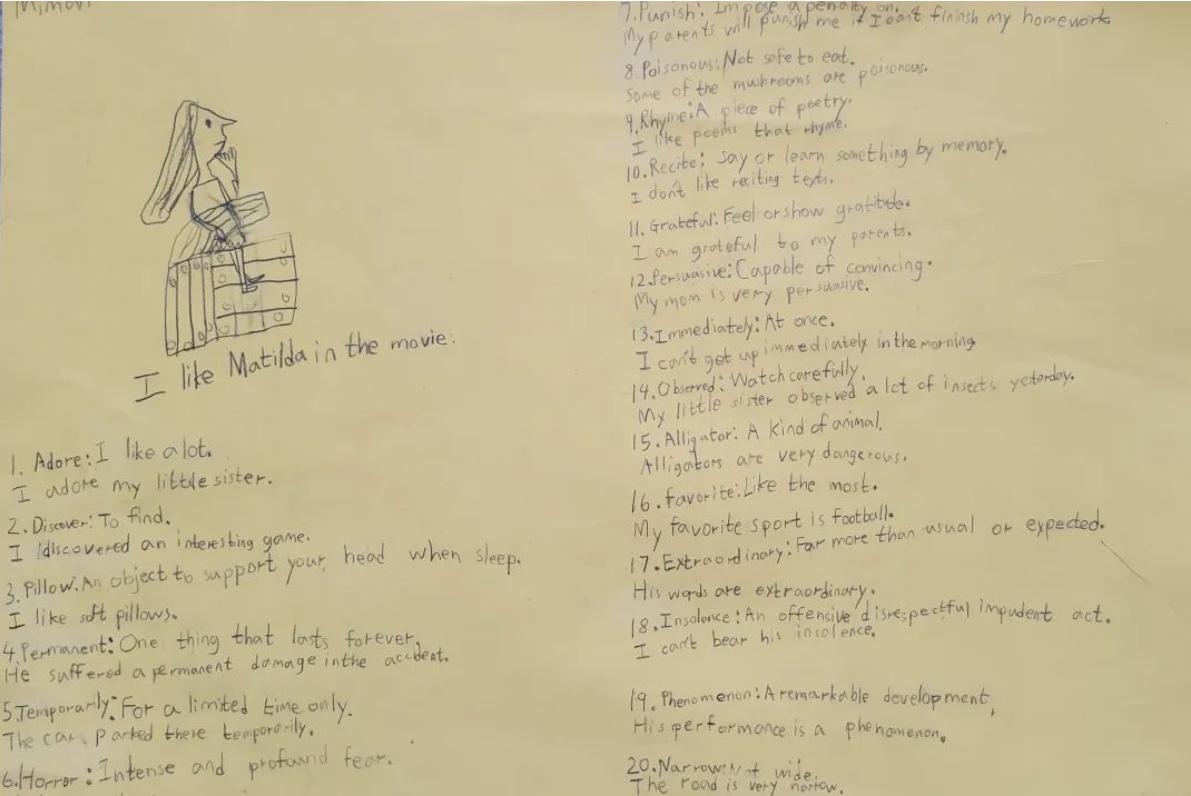 I like Matilda in the movie.
1. Adore: I like a lot.
I adore my little sister.
2. Discover: To find.
I discovered an interesting game.
3. Pillow: An object to support your head when sleep.
I like soft pillows.
4. Permanent: One thing that lasts forever.
He suffered a permanent damage in the accident.
5. Temporarily: For a limited time only.
The car parked there temporarily.
6. Horror: Intense and profound fear.
7. Punish: Impose a penalty on.
My parents will punish me if I can't fininsh my homework
8. Poisonous: Not safe to eat.
Some of the mushrooms are poisonous.
9. Rhyme: A piece of poetry.
I like poems that rhyme.
10. Recite: Say or learn something by memory.
I don't like reciting texts.
11. Grateful: Feel or show gratitude.
I am grateful to my parents.
12. Persuasive: Capable of convincing.
My mom is very persuasive.
13. Immediately: At once.
I can't get up immediately in the morning.
14. Observed: Watch carefully.
My little sister observed a lot of insects yesterday.
15. Alligator: A kind of animal.
Alligators are very dangerous.
16. favorite: Like the most.
My favorite sport is football.
17. Extraordinary: Far more than usual or expected.
His words are extraordinary.
18. Insolence: An offensive disrespectful impudent act.
I can't bear his insolence.
19. Phenomenon: A remarkable development.
His performance is a phenomenon.
20. Narrow: Not wide.
The road is very narrow.